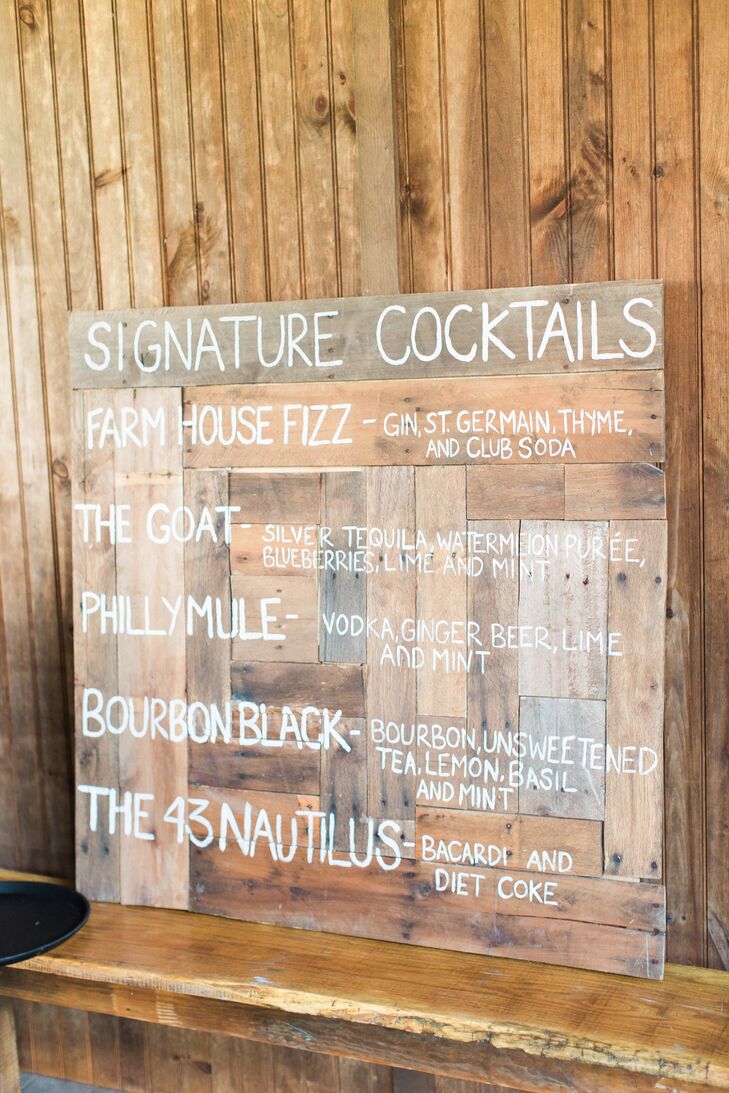 SIGNATURE COCKTAILS
FARM HOUSE FIZZ - GIN, ST. GERMAIN, THYME,
AND CLUB SODA
THE GOAT - SILVER TEQUILA, WATERMElON PURÉE,
BLUEBERRIES, LIME AND MINT
PHILLY MULE - VODKA, GINGER BEER, LIME
AND MINT
BOURBON BLACK - BOURBON, UNSWEETENED
TEA, LEMON, BASIL
AND MINT
THE 43 NAUTILUS - BACARDI AND
DIET COKE